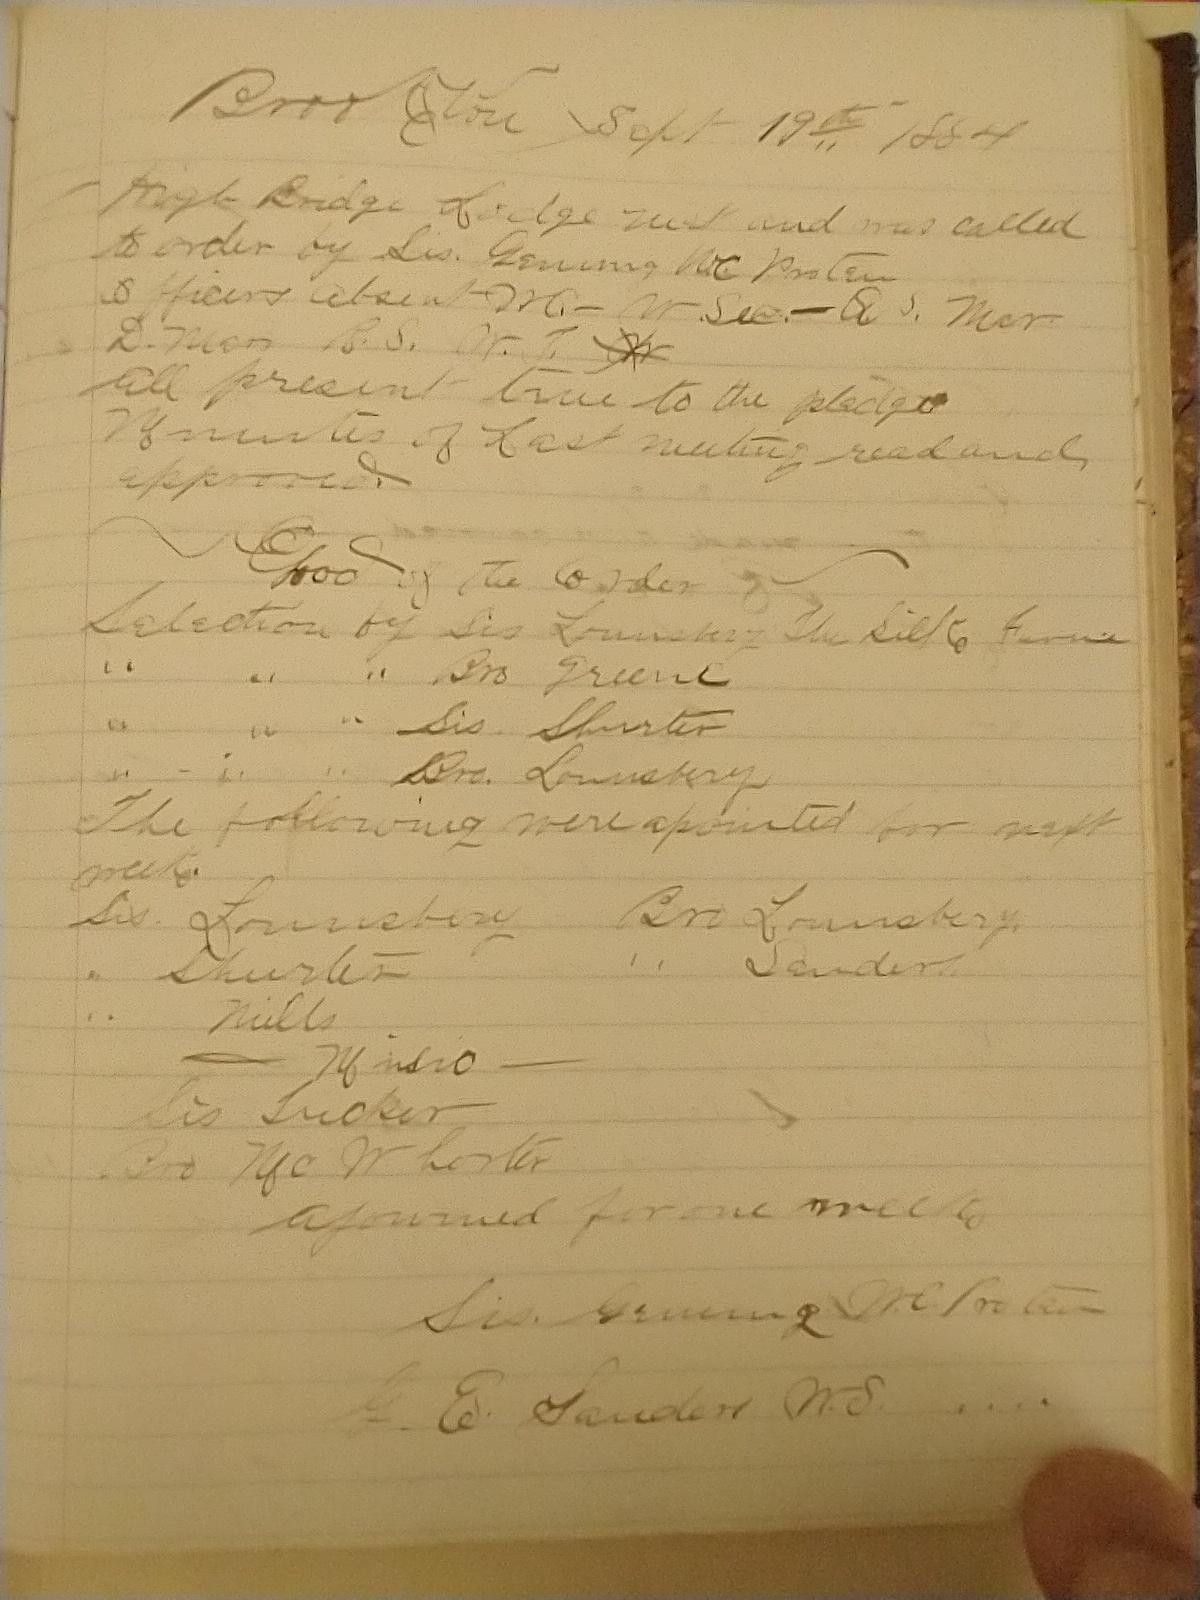 Brookton Sept 19th 1884
High Bridge Lodge met and was called
to order by Sis. Genung WC Protem
Officers absent W.C. - W. Sec. - A S. Mar
D. Mar R.S. W. T.
all present true to the pledge
Minutes of Last meeting read and
approved.
Good of the Order
Selection by Sis Lounsbery The
" " " Bro Greene
" " " Sis. Shurter
" " " Bro. Lounsbery
The following were apointed for next
week.
Sis. Lounsbery Bro Lounsbery.
" Shurter " Sanders
" Mills
— Music —
Sis Tucker
Bro McWhorter
ajourned for one week
Sis. Genung W.C. Protem
G. E. Sanders W.S. ....